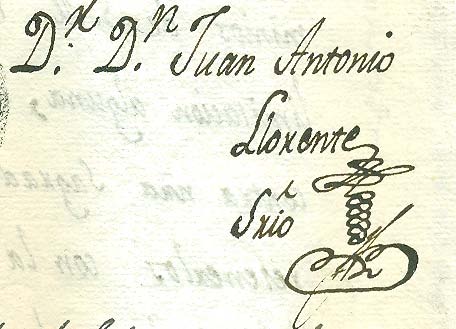 D.r D.n Juan Antonio
Llorente
Srio